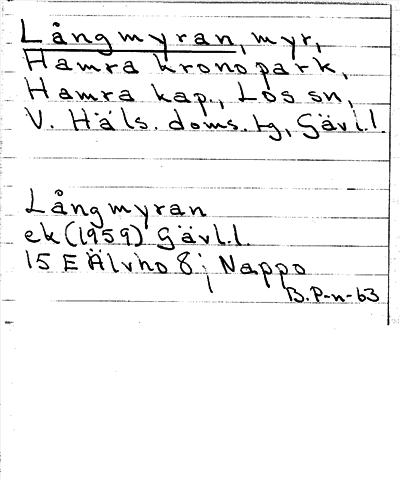 Långmyran, myr,
Hamra kronopark,
Hamra kap., Los sn,
V. Häls. doms. tg, Gävl.l.
Långmyran
ek (1959) Gävl.l.
15 E Älvho 8; Nappo
B.P-n-63